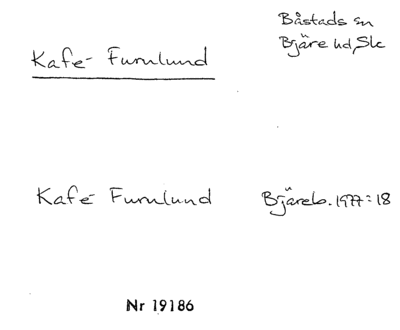 Båstads sn
Bjäre hd, Sk
Kafé Furulund
Kafé Furulund
Bjäreb. 1977:18
Nr 19186